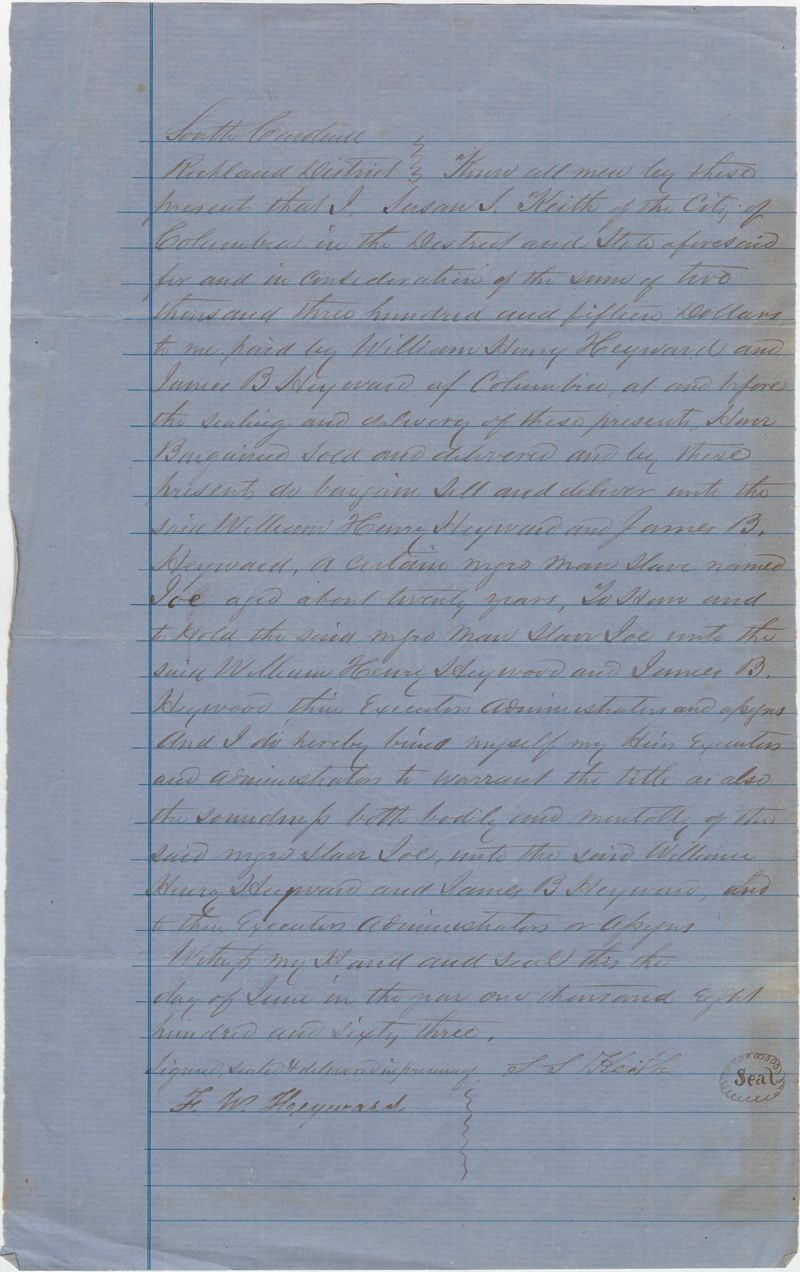 South Carolina
Richland District } Know all men by these
presents that I, Susan S. Keith of the City of
Columbia in the District and State aforesaid
for and in consideration of the sum of two
thousand three hundred and fifteen Dollars
to me paid by William Henry Heyward and
James B Heyward of Columbia, at and before
the sealing and delivery of these presents, Have
Bargained Sold and delivered and by these
presents do bargain Sell and deliver unto the
said William Henry Heyward and James B.
Heyward, a certain negro man slave named
Joe aged about twenty years, To Have and
to Hold the said negro man Slave Joe unto the
said William Henry Heywood and James B.
Heywood, their Executors Administrators and assigns
And I do hereby bind myself my Heirs Executors
and administrators to warrant the title as also
the soundness both bodily and mentally of the
said negro slave Joe, unto the said William
Henry Heyward and James B Heyward, and
to their Executors Administrators or assigns
Witness my Hand and Seal this the
day of June in the year one thousand Eight
hundred and sixty three.
Signed, sealed & delivered in presence of S S Keith Seal
F. W. Heyward